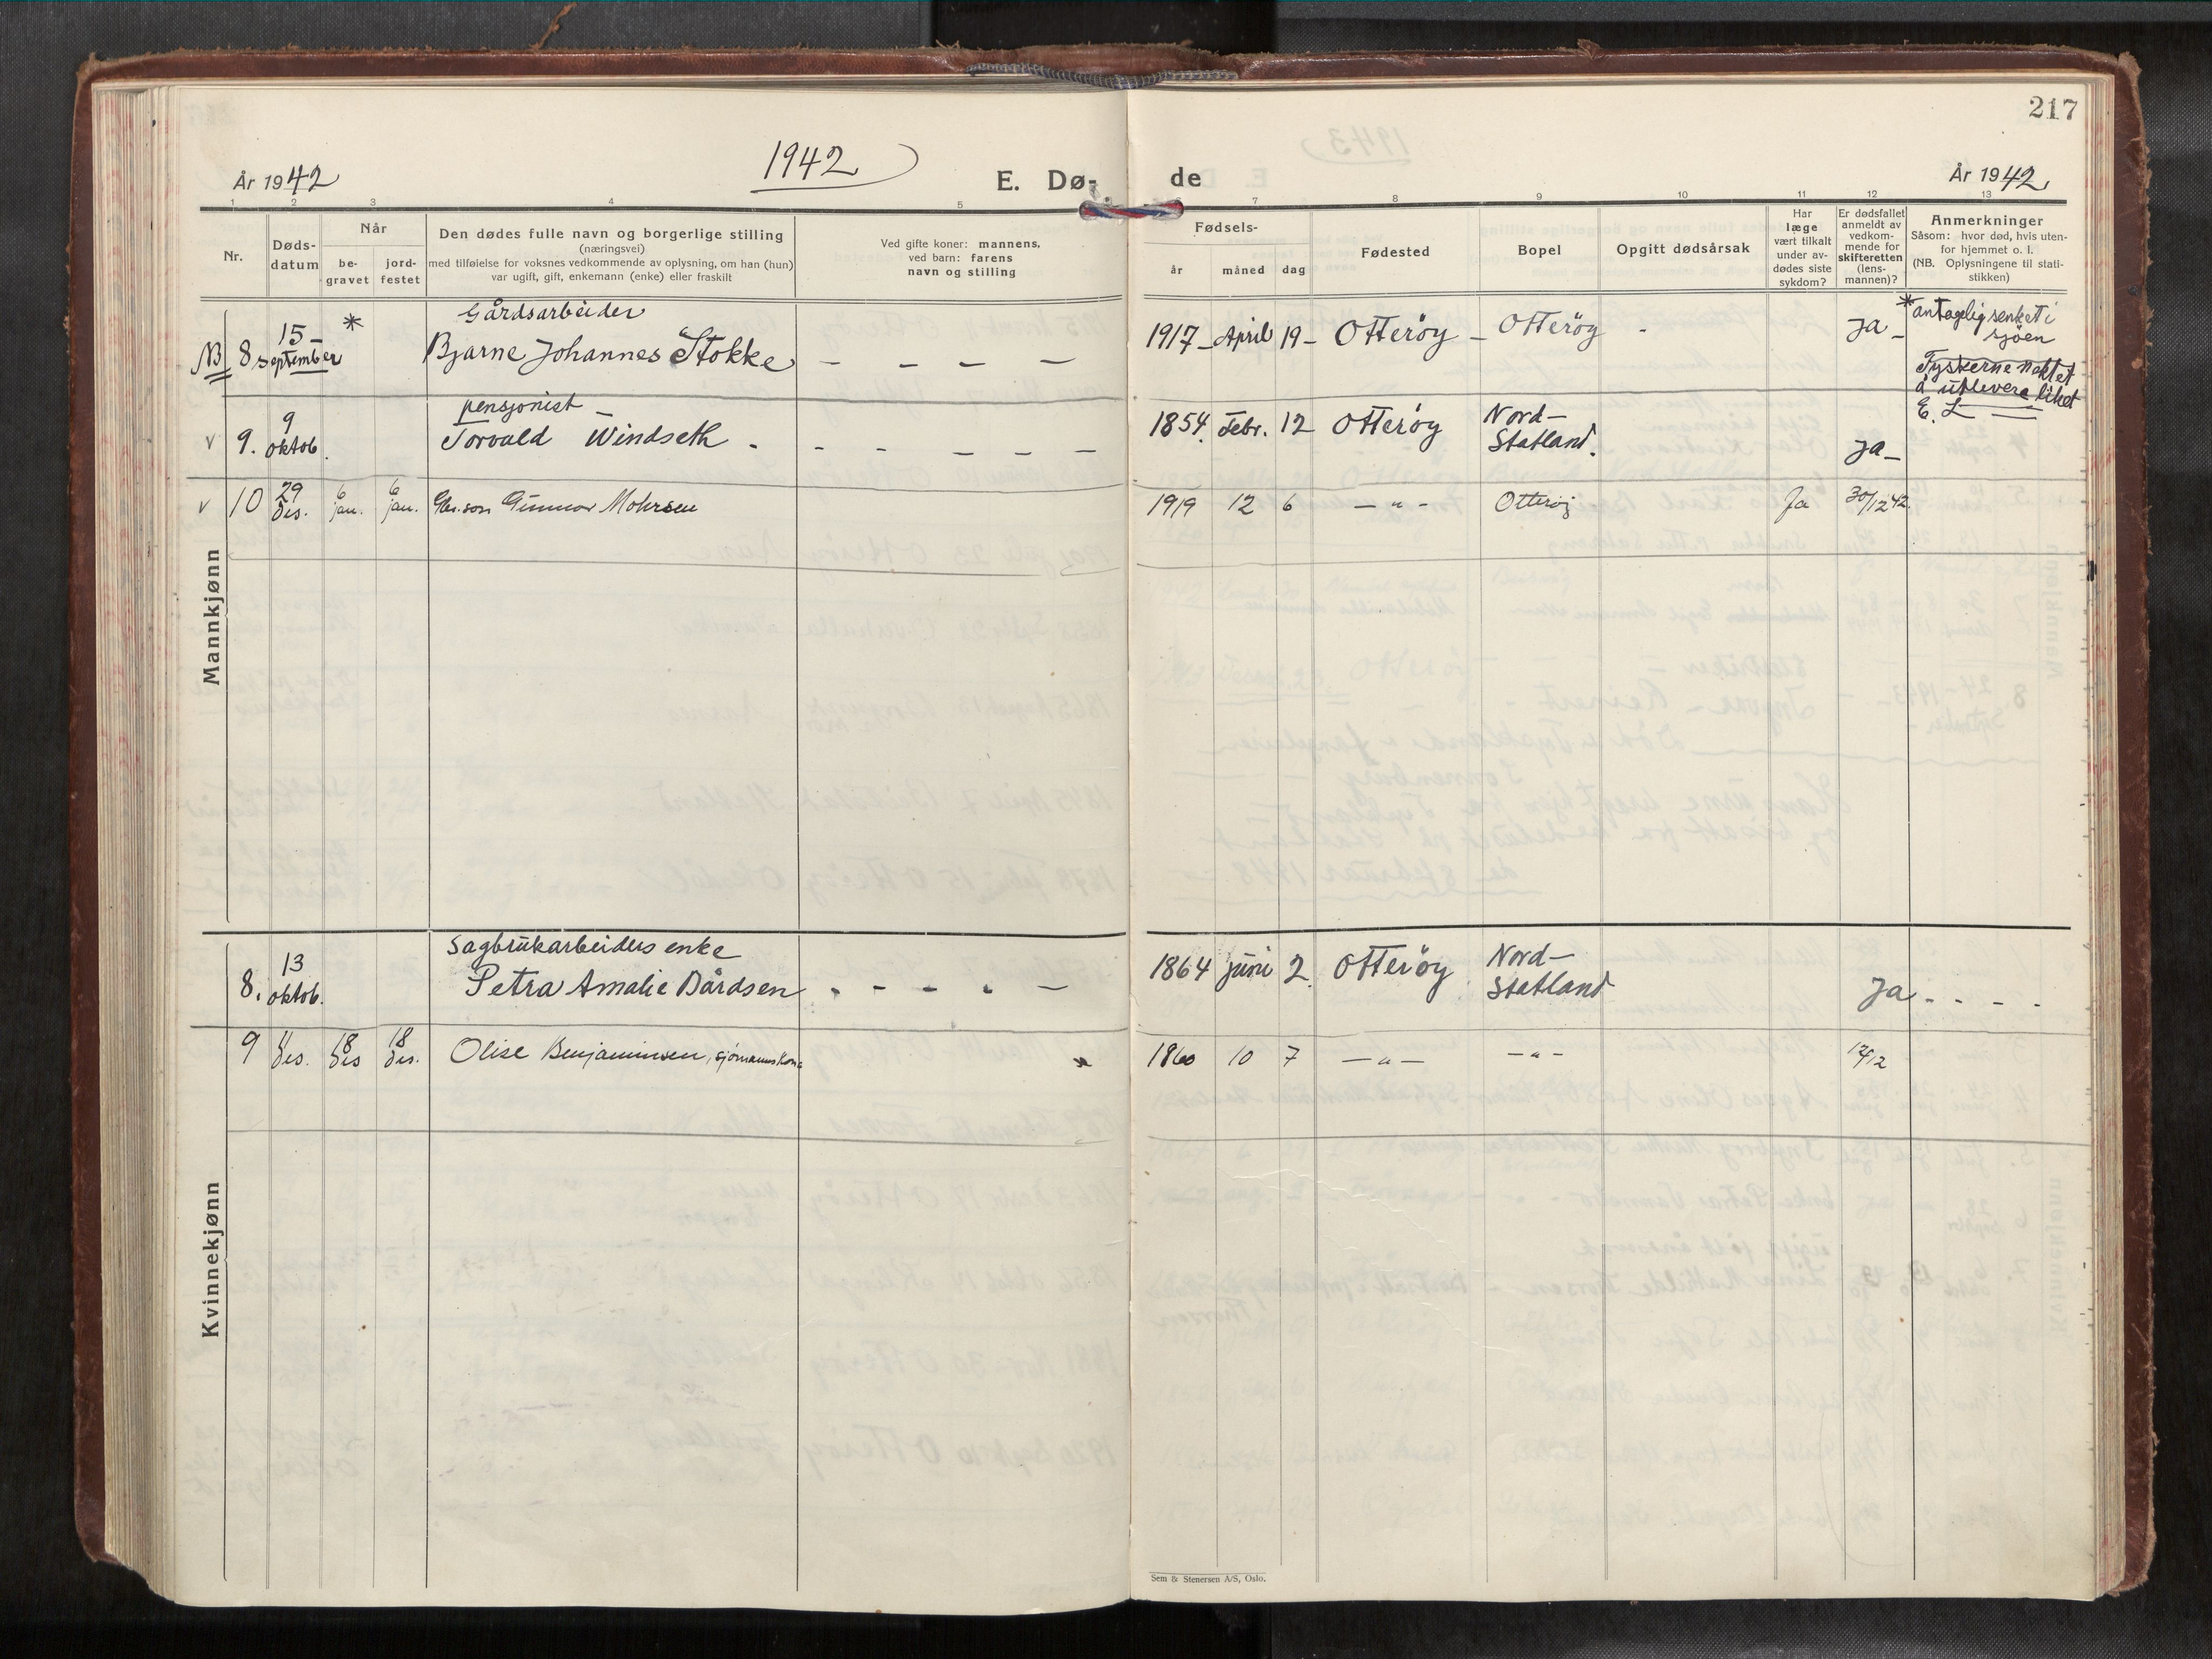 217
1942
År 1942
E. Dø-
de
År 1942
1 2 3 4 5
6 7 8 9 10 11 12 13
Nr.
Døds-
datum
Når
be-
gravet
jord-
festet
Den dødes fulle navn og borgerlige stilling
(næringsvei)
med tilføielse for voksnes vedkommende av oplysning, om han (hun)
var ugift, gift, enkemann (enke) eller fraskilt
Ved gifte koner: mannens,
ved barn: farens
navn og stilling
Fødsels-
år måned dag
Fødested
Bopel
Opgitt dødsårsak
Har
læge
vært tilkalt
under av-
dødes siste
sykdom?
Er dødsfallet
anmeldt av
vedkom-
mende for
skifteretten
(lens-
mannen)?
Anmerkninger
Såsom: hvor død, hvis uten-
for hjemmet o. l.
(NB. Oplysningene til stati-
stikken)
Mannkjønn
Gårdsarbeider
NB 8 15- september * Bjarne Johannes Stokke - - - - 1917 - April 19 - Otterøy - Otterøy - Ja -
* antagelig senket i
sjøen
Tyskerne nektet
å utlevere liket
E. L
pensjonist
v 9. 9 oktob. Torvald Windseth - - - - - - 1854. Febr. 12 Otterøy Nord-
Statland. Ja -
v 10 29 des. 6 jan. 6 jan. Gunnar Mohrsen 1919 12 6 - " - Otterøy Ja 30/12 42.
Kvinnekjønn
Sagbrukarbeiders enke
8. 13 oktob. Petra Amalie Bårdsen - - - - - 1864 juni 2. Otterøy Nord-
Statland Ja - - - -
9 11 des. 18 des 18 des. Olise Benjaminsen, sjømannskone 1860 10 7 - " - - " - 12/12
Sem & Stenersen A/S, Oslo.